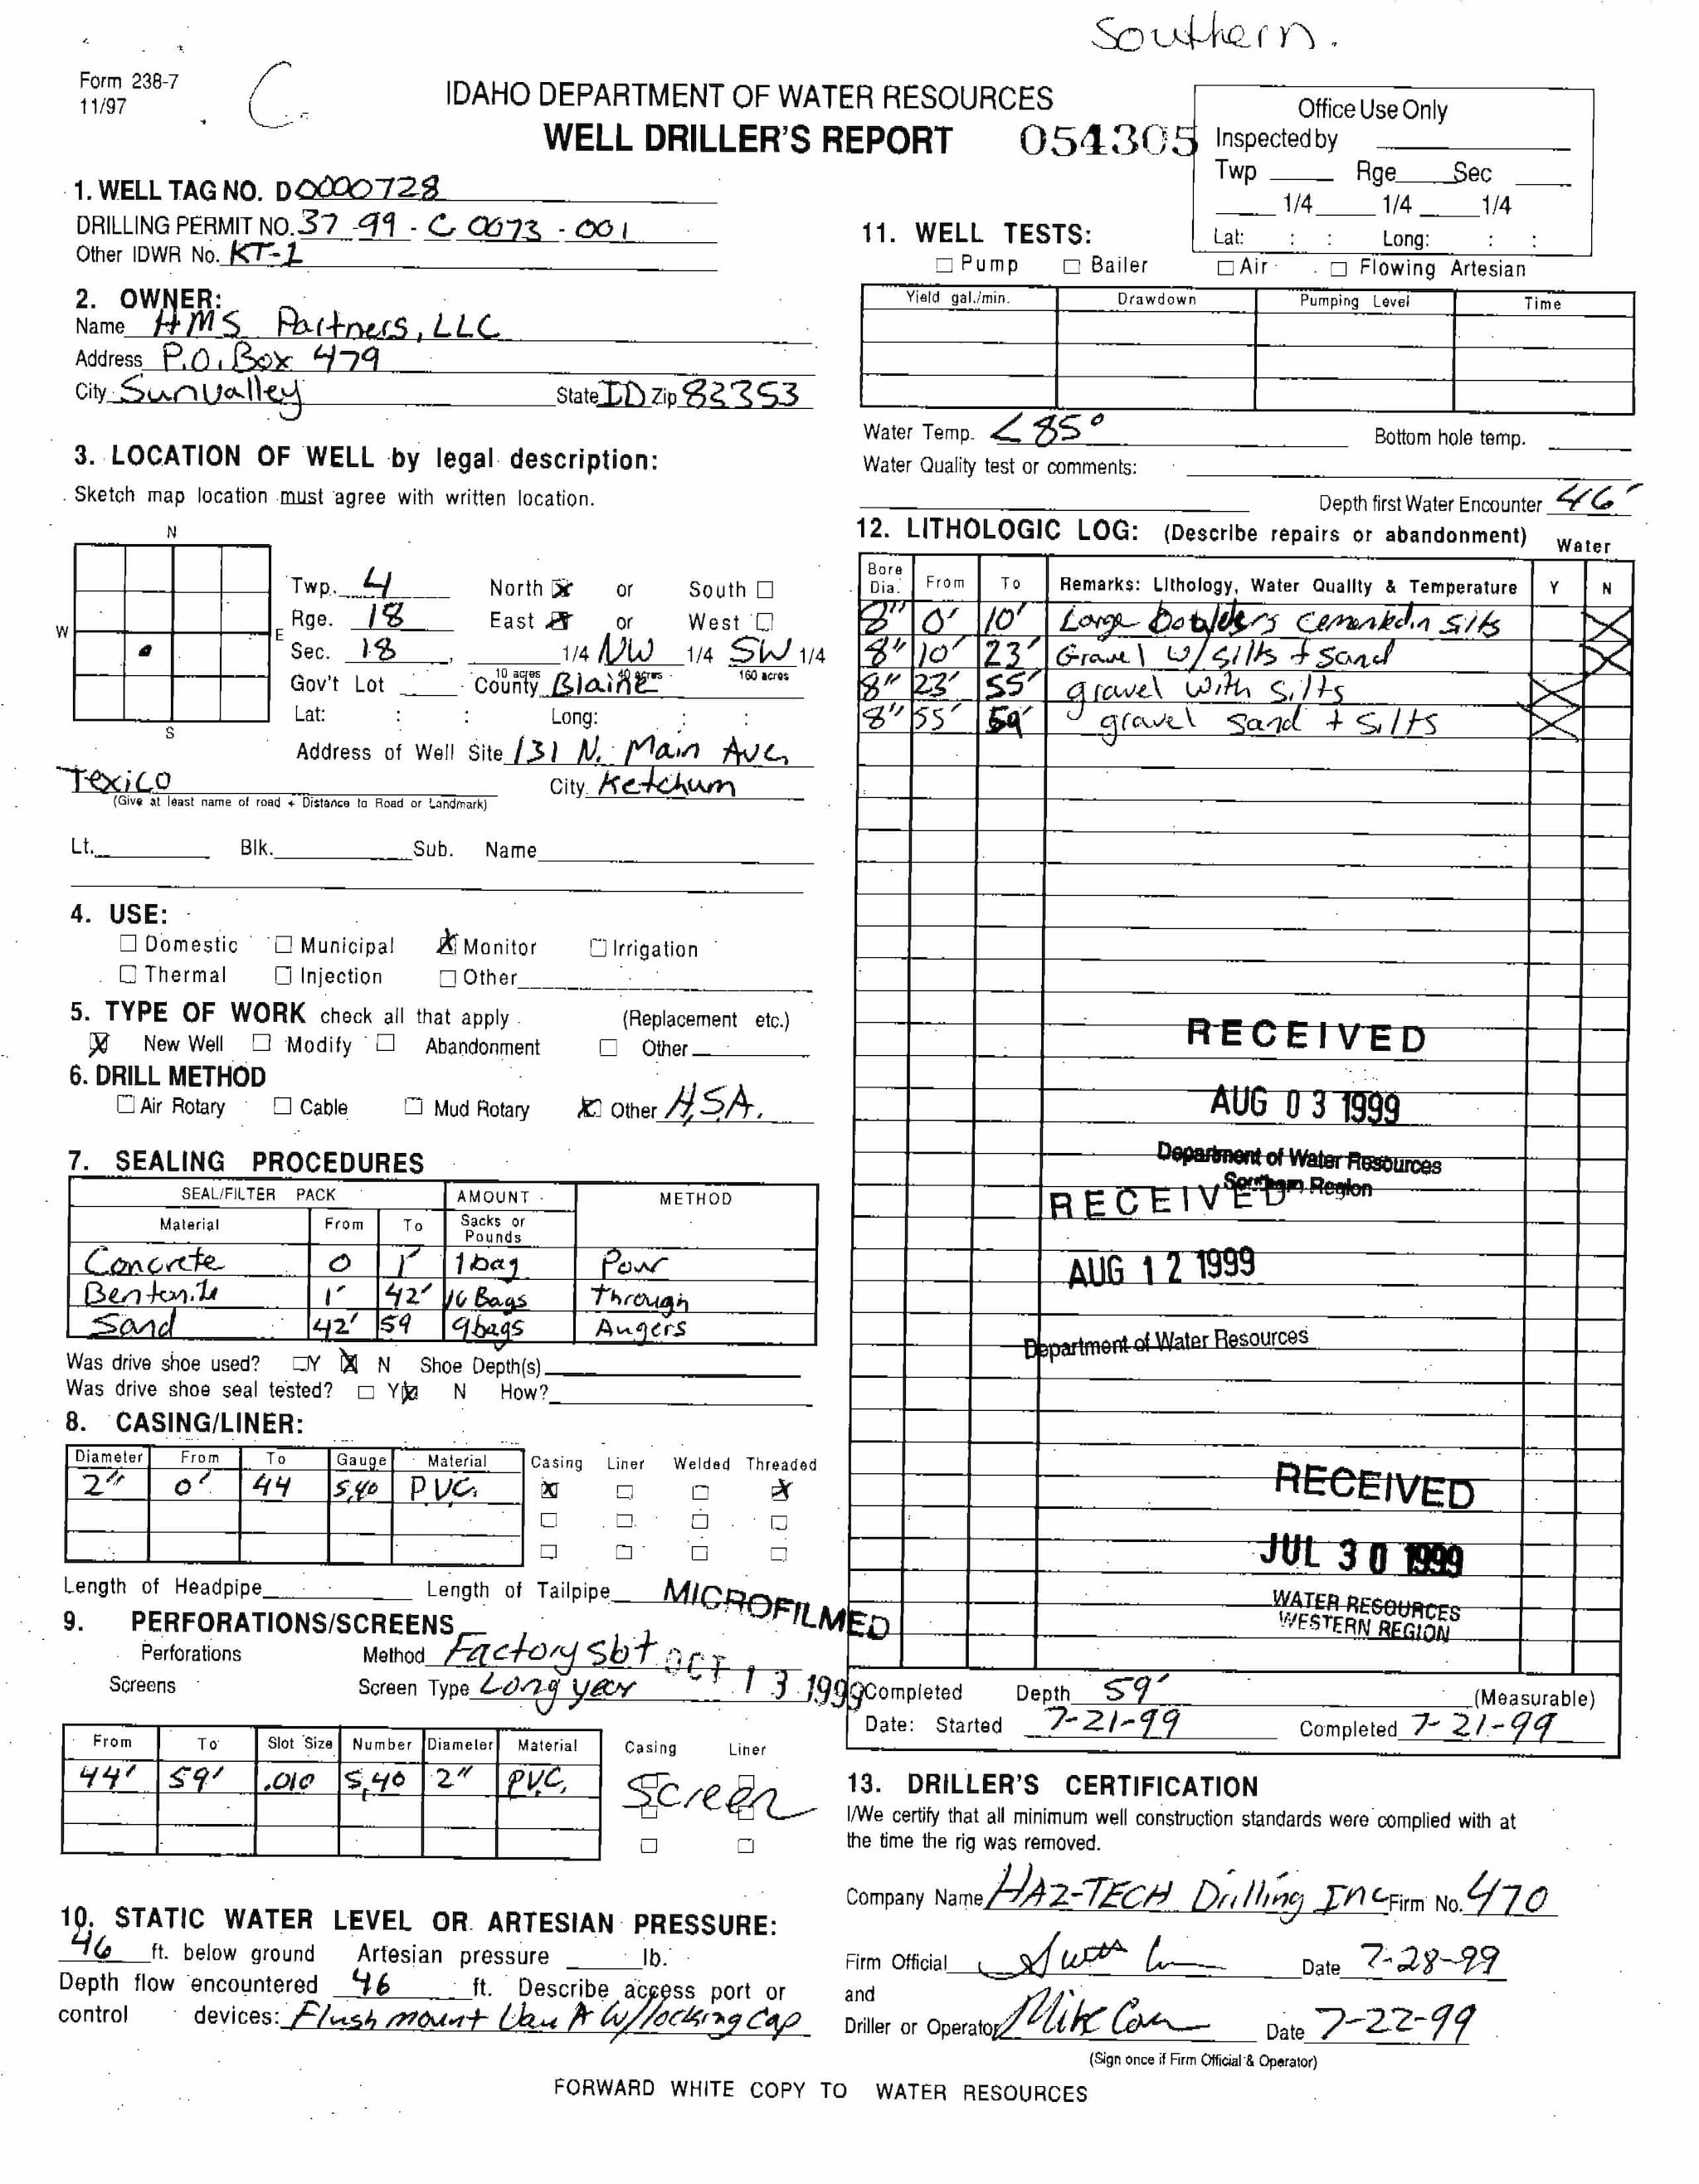 Southern.
Form 238-7
11/97
C.
IDAHO DEPARTMENT OF WATER RESOURCES
WELL DRILLER'S REPORT 054305
Office Use Only
Inspected by
Twp Rge Sec
1/4 1/4 1/4
Lat: : : Long: : :
1. WELL TAG NO. D0000728
DRILLING PERMIT NO. 37-99-C 0073-001
Other IDWR No. KT-1
2. OWNER:
Name HMS Partners, LLC
Address P.O. Box 479
City Sunvalley State ID Zip 83353
3. LOCATION OF WELL by legal description:
Sketch map location must agree with written location.
N
W
E
S
Twp. 4 North X or South
Rge. 18 East X or West
Sec. 18 1/4 NW 1/4 SW 1/4
10 acres 40 acres 160 acres
Gov't Lot County Blaine
Lat: : : Long: : :
Address of Well Site 131 N. Main Ave,
Texico City Ketchum
(Give at least name of road + Distance to Road or Landmark)
Lt. Blk. Sub. Name
4. USE:
Domestic Municipal X Monitor Irrigation
Thermal Injection Other
5. TYPE OF WORK check all that apply (Replacement etc.)
X New Well Modify Abandonment Other
6. DRILL METHOD
Air Rotary Cable Mud Rotary X Other H.S.A.
7. SEALING PROCEDURES
SEAL/FILTER PACK AMOUNT METHOD
Material From To Sacks or Pounds
Concrete 0 1' 1 bag Pour
Bentonite 1' 42' 16 Bags through
Sand 42' 59 9 bags Augers
Was drive shoe used? Y X N Shoe Depth(s)
Was drive shoe seal tested? Y X N How?
8. CASING/LINER:
Diameter From To Gauge Material Casing Liner Welded Threaded
2" 0' 44 S,40 PVC, X X
Length of Headpipe Length of Tailpipe
MICROFILMED
OCT 13 1999
9. PERFORATIONS/SCREENS
Perforations Method Factory Slot
Screens Screen Type Longyear
From To Slot Size Number Diameter Material Casing Liner
44' 59' .010 S,40 2" PVC, Screen
10. STATIC WATER LEVEL OR ARTESIAN PRESSURE:
46 ft. below ground Artesian pressure lb.
Depth flow encountered 46 ft. Describe access port or
control devices: Flush mount W/locking Cap
11. WELL TESTS:
Pump Bailer Air Flowing Artesian
Yield gal./min. Drawdown Pumping Level Time
Water Temp. < 85° Bottom hole temp.
Water Quality test or comments:
Depth first Water Encounter 46'
12. LITHOLOGIC LOG: (Describe repairs or abandonment) Water
Bore Dia. From To Remarks: Lithology, Water Quality & Temperature Y N
8" 0' 10' Large Boulders cemented in silts X
8" 10' 23' Gravel w/ silts + sand X
8" 23' 55' gravel with silts X
8" 55' 59' gravel sand + silts X
RECEIVED
AUG 03 1999
Department of Water Resources
Southern Region
RECEIVED
AUG 12 1999
Department of Water Resources
RECEIVED
JUL 30 1999
WATER RESOURCES
WESTERN REGION
Completed Depth 59' (Measurable)
Date: Started 7-21-99 Completed 7-21-99
13. DRILLER'S CERTIFICATION
I/We certify that all minimum well construction standards were complied with at
the time the rig was removed.
Company Name HAZ-TECH Drilling Inc Firm No. 470
Firm Official Date 7-28-99
and
Driller or Operator Mike Date 7-22-99
(Sign once if Firm Official & Operator)
FORWARD WHITE COPY TO WATER RESOURCES